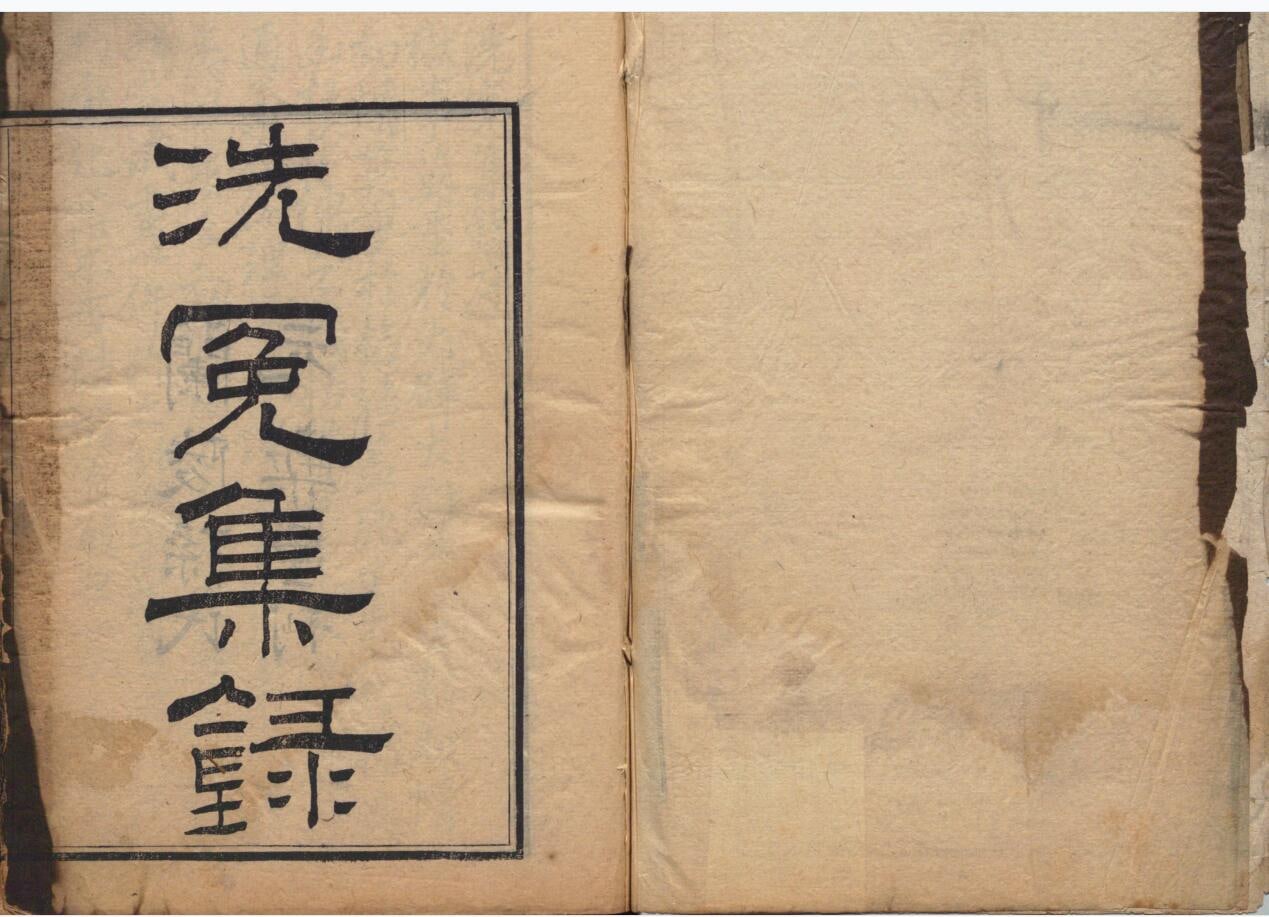 洗冤集錄